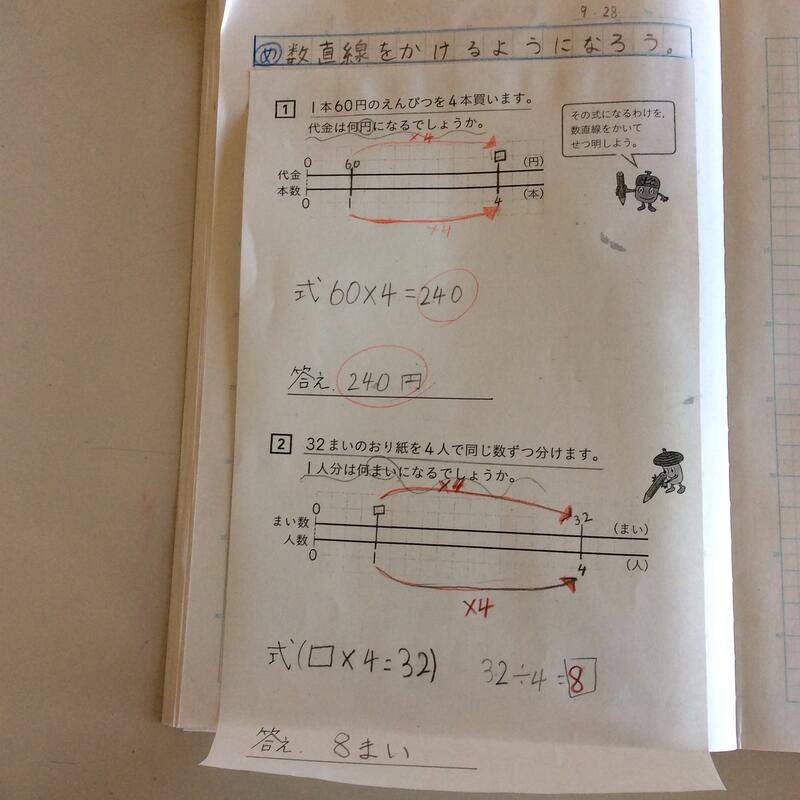 9.28
め 数直線をかけるようになろう。
1 1本60円のえんぴつを4本買います。
代金は何円になるでしょうか。
その式になるわけを,
数直線をかいて
せつ明しよう。
×4
0 60 □ (円)
代金
本数 (本)
0 1 4
×4
式 60×4=240
答え. 240円
2 32まいのおり紙を4人で同じ数ずつ分けます。
1人分は何まいになるでしょうか。
×4
0 □ 32
まい数 (まい)
人数
0 1 4 (人)
×4
式(□×4=32) 32÷4=8
答え. 8まい